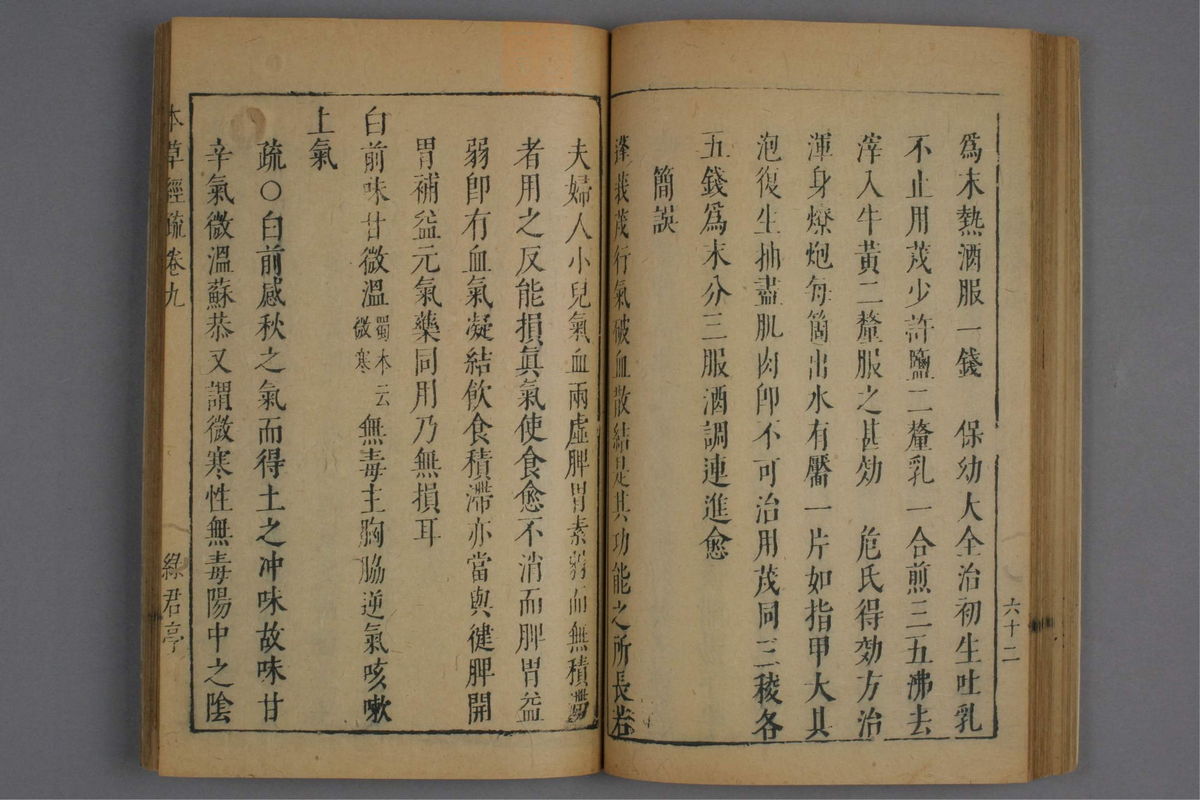 爲末熱酒服一錢　保幼大全治初生吐乳
不止用茂少許鹽二釐乳一合煎三五沸去
滓入牛黃二釐服之甚効　危氏得効方治
渾身燎炮每箇出水有靨一片如指甲大其
泡復生抽盡肌肉卽不可治用茂同三稜各
五錢爲末分三服酒調連進愈
簡誤
蓬莪茂行氣破血散結是其功能之所長若
六十二
夫婦人小兒氣血兩虛脾胃素弱而無積滯
者用之反能損眞氣使食愈不消而脾胃益
弱卽有血氣凝結飲食積滯亦當與健脾開
胃補益元氣藥同用乃無損耳
白前味甘微溫蜀本云微寒無毒主胸脇逆氣咳嗽
上氣
疏〇白前感秋之氣而得土之冲味故味甘
辛氣微溫蘇恭又謂微寒性無毒陽中之陰
本草經疏卷九
綠君亭